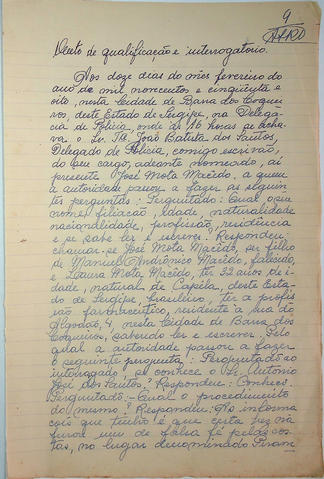 9
Auto de qualificação e interrogatorio.
Aos doze dias do mês fevereiro do
ano de mil novecentos e cinqüenta e
oito, nesta Cidade de Barra dos Coquei-
ros, deste Estado de Sergipe, na Delega-
cia de Policia, onde às 16 horas se acha-
va o Sr. João Batista dos Santos,
Delegado de Policia, comigo escrivão,
do seu cargo, adeante nomeado, aí
presente José Mota Macêdo, a quem
a autoridade passou a fazer as seguin-
tes perguntas: Perguntado: Qual o seu
nome, filiação, idade, naturalidade
nacionalidade, profissão, residência
e se sabe ler e escrever? Respondeu
chamar-se José Mota Macêdo, ser filho
de Manuel Andrônico Macêdo, falecido,
e Laura Mota Macêdo, ter 32 anos de i-
dade, natural de Capéla, deste Esta-
do de Sergipe, brasileiro, ter a profis-
são farmaceutico, residente á rua do
Algodão, 4, nesta Cidade de Barra dos
Coqueiros, sabendo ler e escrever. Pelo
qual a autoridade passou a fazer
o seguinte pergunta: Perguntado ao
interrogado se conhece o Sr. Antonio
José dos Santos? Respondeu: Conheço.
Perguntado:- Qual o procedimento
do mesmo? Respondeu: As informa
ções que tenho é que certa vez na
furou um de faca pelas cos-
tas, no lugar denominado Piram